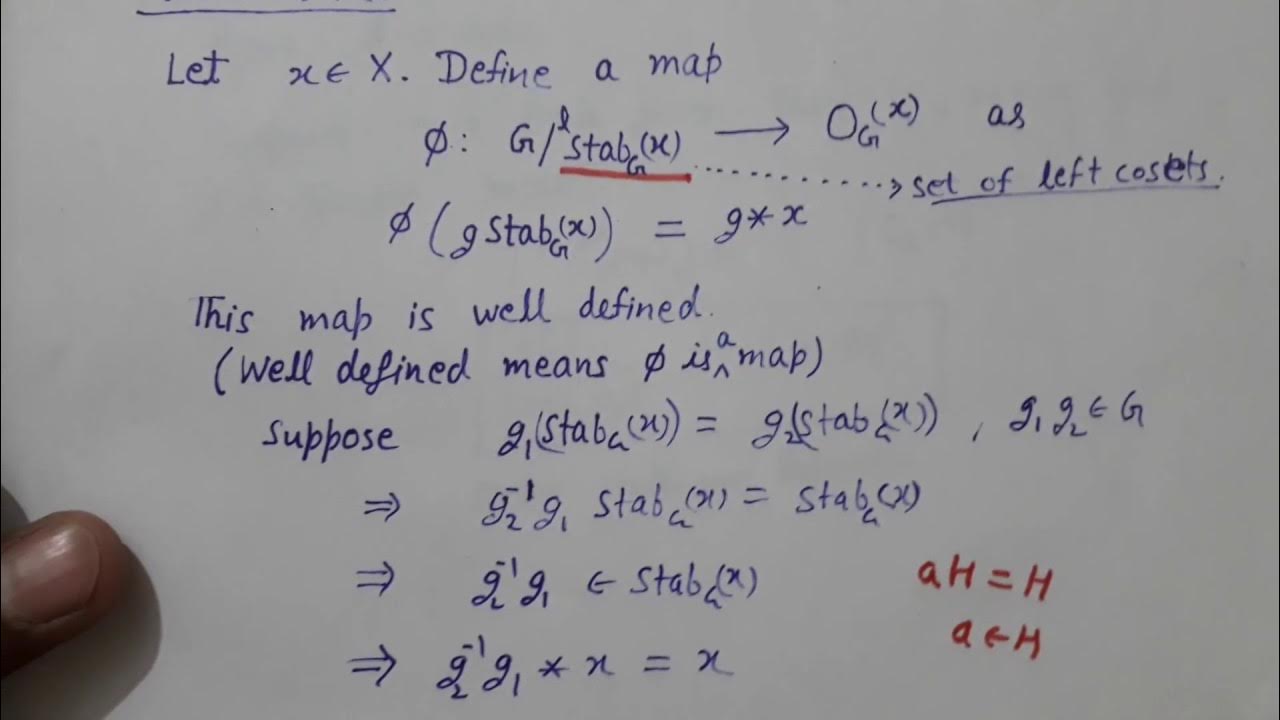 Let x ∈ X. Define a map
ϕ : G/ˡStab_G(x) ⟶ O_G(x) as
............> set of left cosets.
ϕ(g Stab_G(x)) = g * x
This map is well defined.
(Well defined means ϕ is a map)
Suppose g₁(Stab_G(x)) = g₂(Stab_G(x)) , g₁ g₂ ∈ G
⇒ g₂⁻¹ g₁ Stab_G(x) = Stab_G(x)
⇒ g₂⁻¹ g₁ ∈ Stab_G(x)
aH = H
a ∈ H
⇒ g₂⁻¹ g₁ * x = x